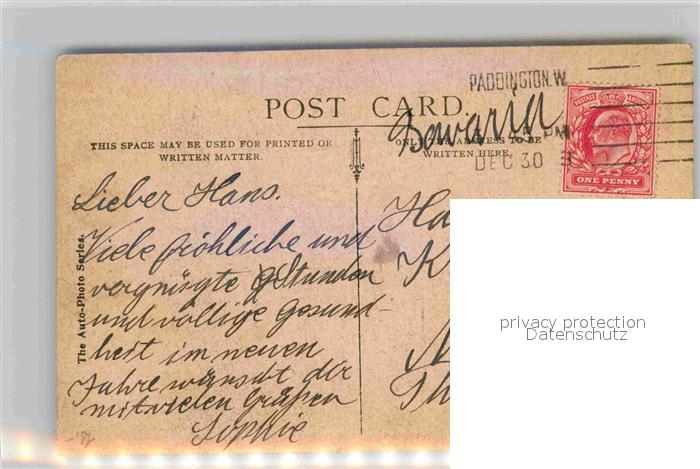 PADDINGTON. W.
POST CARD.
Bavaria
PM
DEC 30
THIS SPACE MAY BE USED FOR PRINTED OR
WRITTEN MATTER.
ONLY THE ADDRESS TO BE
WRITTEN HERE.
POSTAGE
ONE PENNY
The Auto-Photo Series.
Lieber Hans.
Viele fröhliche und
vergnügte Stunden
und völlige Gesund-
heit im neuen
Jahre wünscht dir
mit vielen Grüßen
Sophie
Ha
K
N
Th
privacy protection
Datenschutz